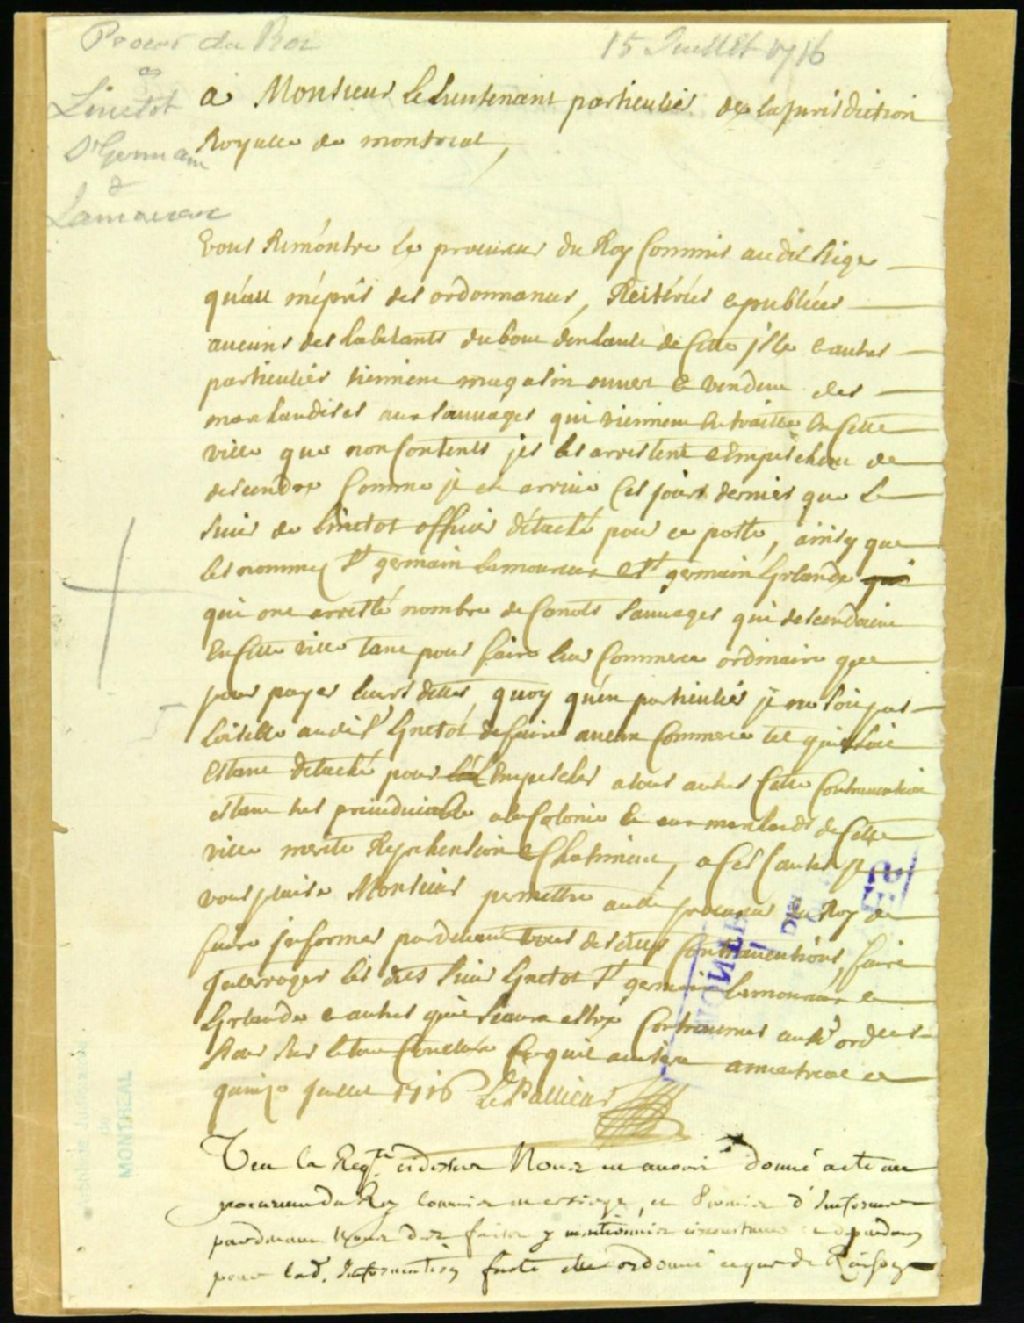 Procur du Roi
15 Juillet 1716
as
Linctot
St Germain
&
Lamoureux
A Monsieur le Lieutenant particulier de la Jurisdiction
Royalle de montreal,
Vous Remontre le procureur du Roy Commis audit siege
qu'au mépris des ordonnances, Reiterées e publiées
aucuns des habitants du bout d'enhault de Cette jsle e autres
particuliers tiennent magasin ouvert e vendent des
marchandises aux sauvages qui viennent En traitte En Cette
ville que non Contents jls les arrestent e Empeschent de
descendre Comme jl est arrivé Ces jours derniers que le
sieur de linctot officier détaché pour ce poste, ainsy que
les nommez St germain Lamoureux e St germain Grlande
qui ont arresté nombre de Canots Sauvages qui descendoient
En Cette ville tant pour faire leur Commerce ordinaire que
pour payer leurs dettes quoy qu'en particulier jl ne soit pas
loisible audit Sr Linctot de faire aucun Commerce tel qu'il soit
Estant detaché pour Empescher a tous autres Cette Contravention
estant tres prejudiciable a la Colonie Et aux marchands de Cette
ville merite Reprehension e Chatiment, a Ces Causes jl
vous plaise Monsieur permettre audit procureur du Roy de
faire jnformer pardevant vous desdittes Contraventions, faire
jnterroger les dits sieur Linctot St germain Lamoureux e
Grlande e autres qui seront estre Contrevenus auxd. ordres
pour sur le tout Conclure Ce qu'il avisera a montreal ce
quinze juillet 1716 Le Pallieur
MONTREAL
Veu la Reqte cy dessus Nous en avons donné acte au
procureur du Roy commis en ce siege, et permis d'Informer
pardevant Nous des faits y mentionnés circonstances et dependances
pour lad. Information faite estre ordonné ce que de Raison